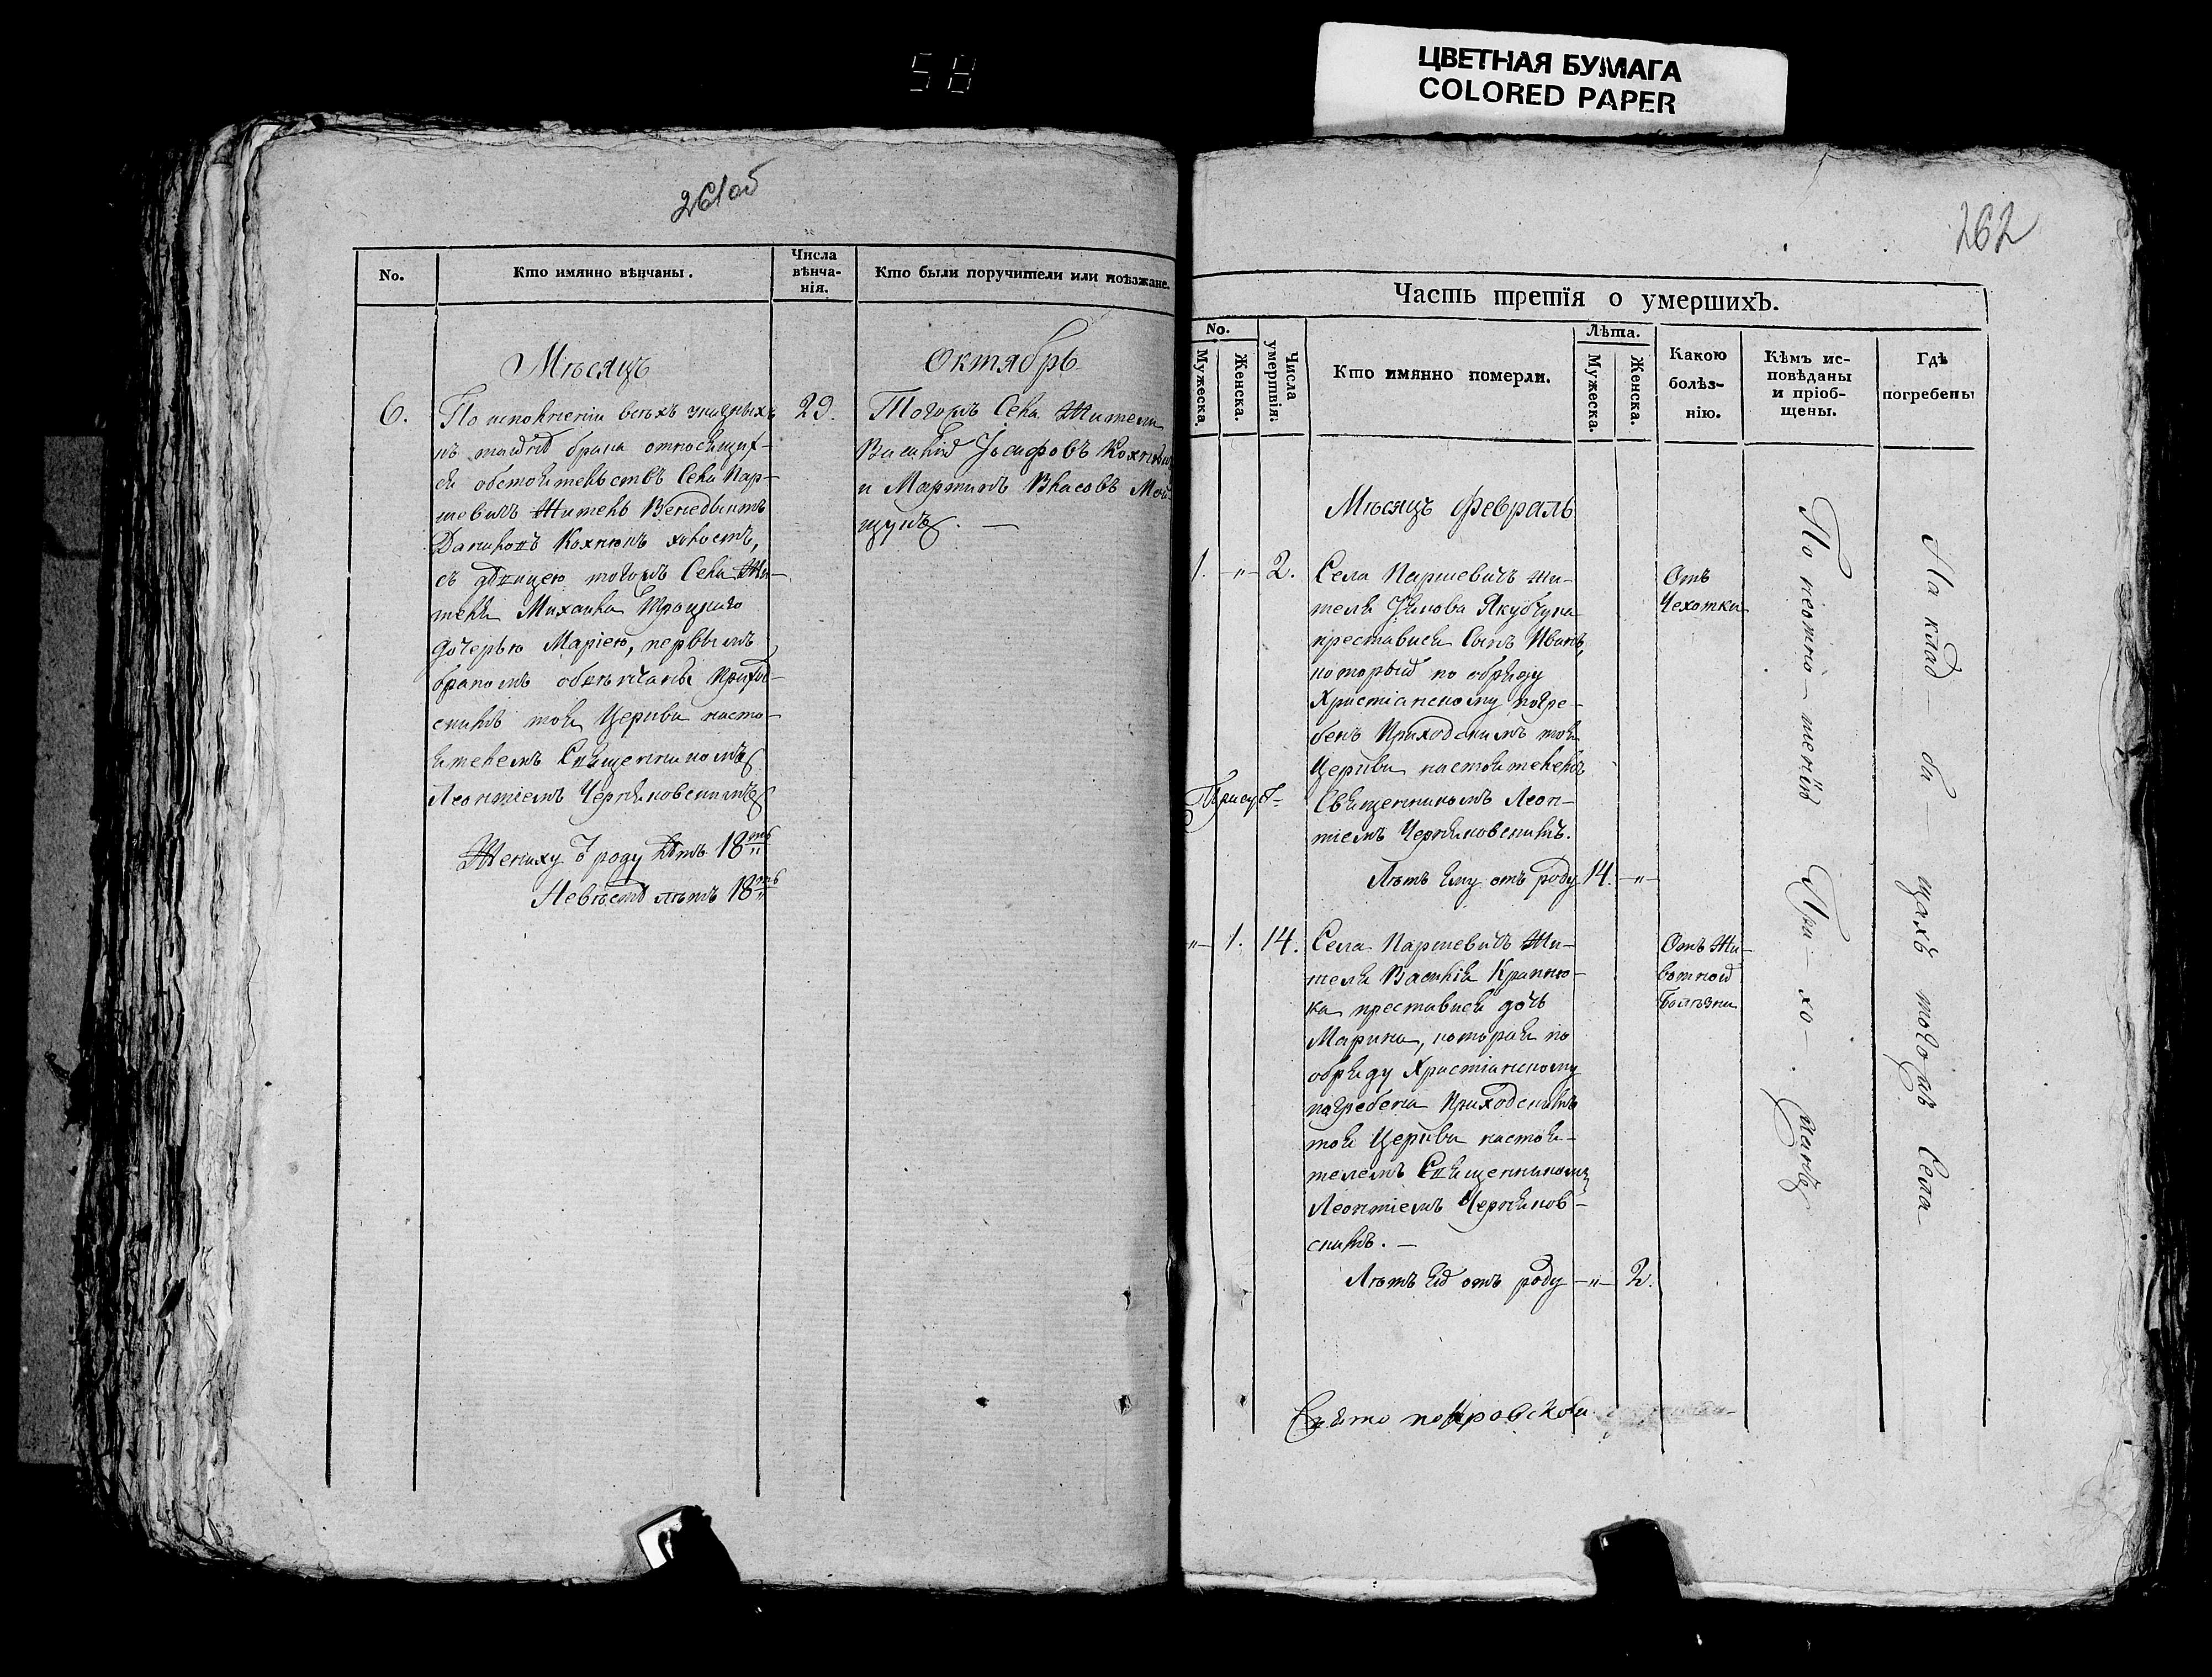 58
ЦВЕТНАЯ БУМАГА
COLORED PAPER
261об
No.
Кто имянно вѣнчаны.
Числа вѣнча-нія.
Кто были поручители или поѣзжане.
Мѣсяцъ
Октябрь
6.
По исполненіи всѣхъ
къ тайнѣ брака относящих-
ся обстоятельствъ Села Пар-
шевичъ Житель Венедыктъ
Даниловъ Кохнюкъ холостъ,
съ дѣвицею тогожъ Села Жи-
теля Михаила Троцкаго
дочерью Маріею, первымъ
бракомъ обвѣнчаны Приход-
скимъ тоя Церкви насто-
ятелемъ Священникомъ
Леонтіемъ Черняковскимъ
Жениху ѿ роду Лѣтъ 18тъ
Невѣстѣ лѣтъ 18тъ
29.
Тогожъ Села Жители
Василій Іосифовъ
и Мартинъ Власовъ Мой-
щукъ. —
262
Часть третія о умершихъ.
No.
Мужеска.
Женска.
Числа умертвія.
Кто имянно померли.
Лѣта.
Мужеска.
Женска.
Какою болѣз-нію.
Кѣмъ ис-повѣданы и пріоб-щены.
Гдѣ погребены
Мѣсяцъ Февраль
1. -„- 2.
Села Паршевичъ жи-
теля Якубчука
преставися Сынъ Иванъ,
который по обряду
Христіанскому погре-
бенъ Приходскимъ тоя
Церкви настоятелемъ
Священникомъ Леон-
тіемъ Черняковскимъ.
Лѣтъ Ему отъ роду 14. -„-
Отъ
Чехотки
-„- 1. 14.
Села Паршевичъ Жи-
теля Василія Крапню-
ка преставися дочь
Марина, которая по
обряду Христіанскому
погребена Приходскимъ
тоя Церкви настоя-
телемъ Священникомъ
Леонтіемъ Черняков-
скимъ. —
Лѣтъ Ей отъ роду -„- 2.
Отъ Жи-
вотной
Болѣзни
При — хо —
На клад — би — щахъ тогожъ Села
Свято покровской